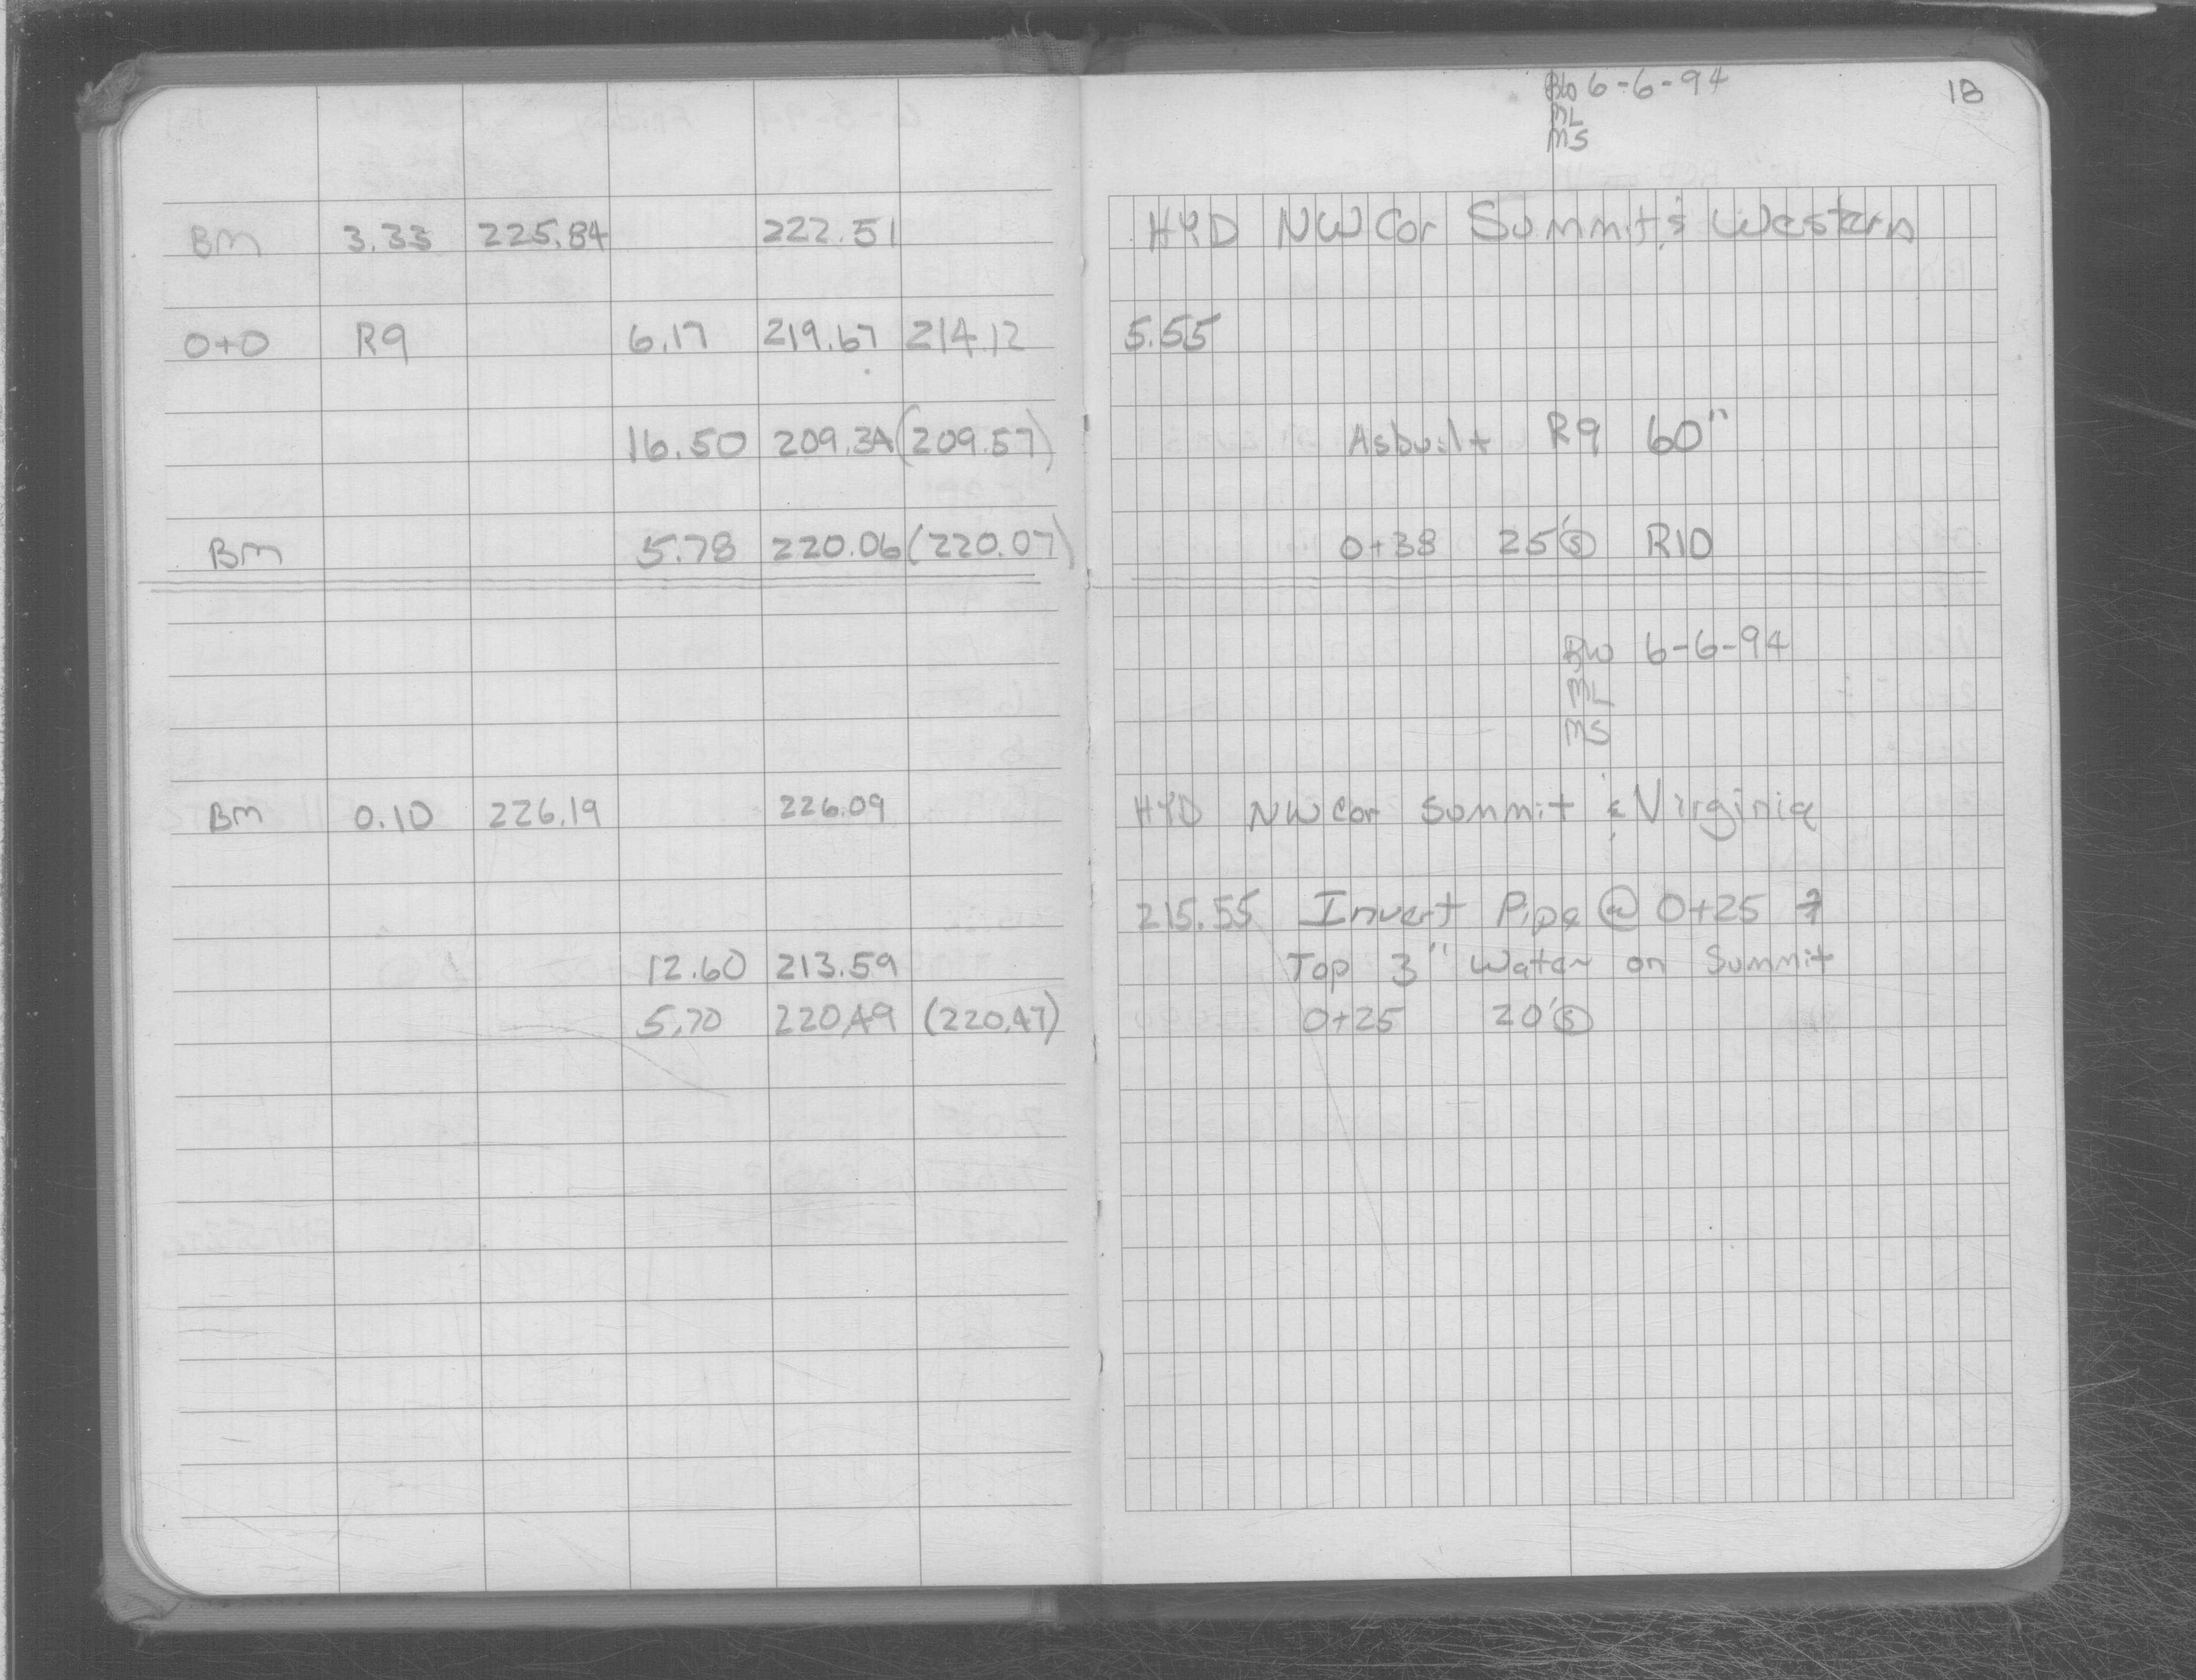 BW 6-6-94 18
ML
MS
BM 3.33 225.84 222.51 HYD NW Cor Summit & Western
0+0 R9 6.17 219.67 214.12 5.55
16.50 209.34 (209.57) Asbuilt R9 60"
BM 5.78 220.06 (220.07) 0+38 25'Ⓢ R10
BW 6-6-94
ML
MS
BM 0.10 226.19 226.09 HYD NW Cor Summit & Virginia
215.55 Invert Pipe @ 0+25
12.60 213.59 Top 3" Water on Summit
5.70 220.49 (220.47) 0+25 20'Ⓢ